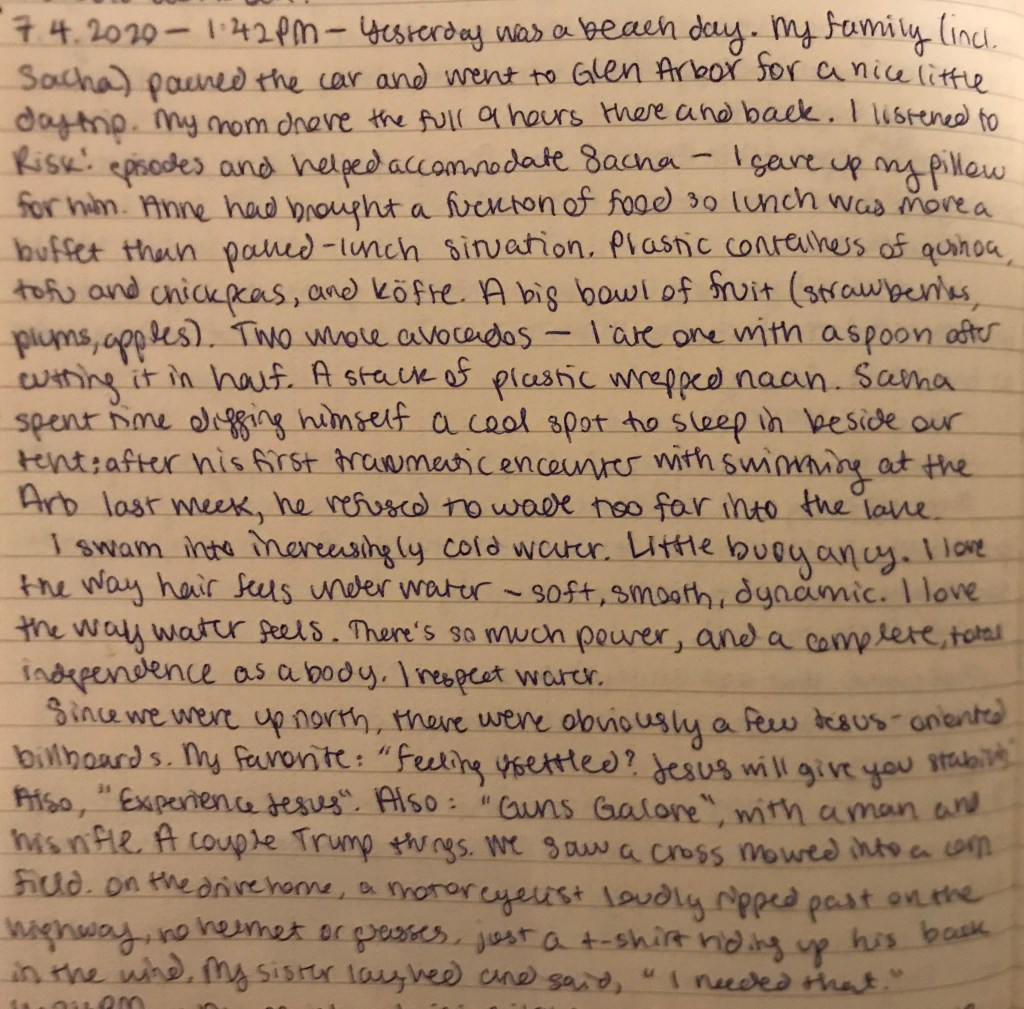 7.4.2020 – 1:42PM – Yesterday was a beach day. My family (incl.
Sacha) packed the car and went to Glen Arbor for a nice little
daytrip. My mom drove the full 9 hours there and back. I listened to
Risk! episodes and helped accommodate Sacha – I gave up my pillow
for him. Anne had brought a fuckton of food so lunch was more a
buffet than packed-lunch situation. Plastic containers of quinoa,
tofu and chickpeas, and köfte. A big bowl of fruit (strawberries,
plums, apples). Two whole avocados – I ate one with a spoon after
cutting it in half. A stack of plastic wrapped naan. Sacha
spent time digging himself a cool spot to sleep in beside our
tent; after his first traumatic encounter with swimming at the
Arb last week, he refused to wade too far into the lake.
I swam into increasingly cold water. Little buoyancy. I love
the way hair feels under water – soft, smooth, dynamic. I love
the way water feels. There's so much power, and a complete, total
independence as a body. I respect water.
Since we were up north, there were obviously a few Jesus-oriented
billboards. My favorite: "Feeling upsettled? Jesus will give you stability"
Also, "Experience Jesus". Also: "Guns Galore", with a man and
his rifle. A couple Trump things. We saw a cross mowed into a corn
field. On the drive home, a motorcyclist loudly ripped past on the
highway, no helmet or glasses, just a t-shirt riding up his back
in the wind. My sister laughed and said, "I needed that."